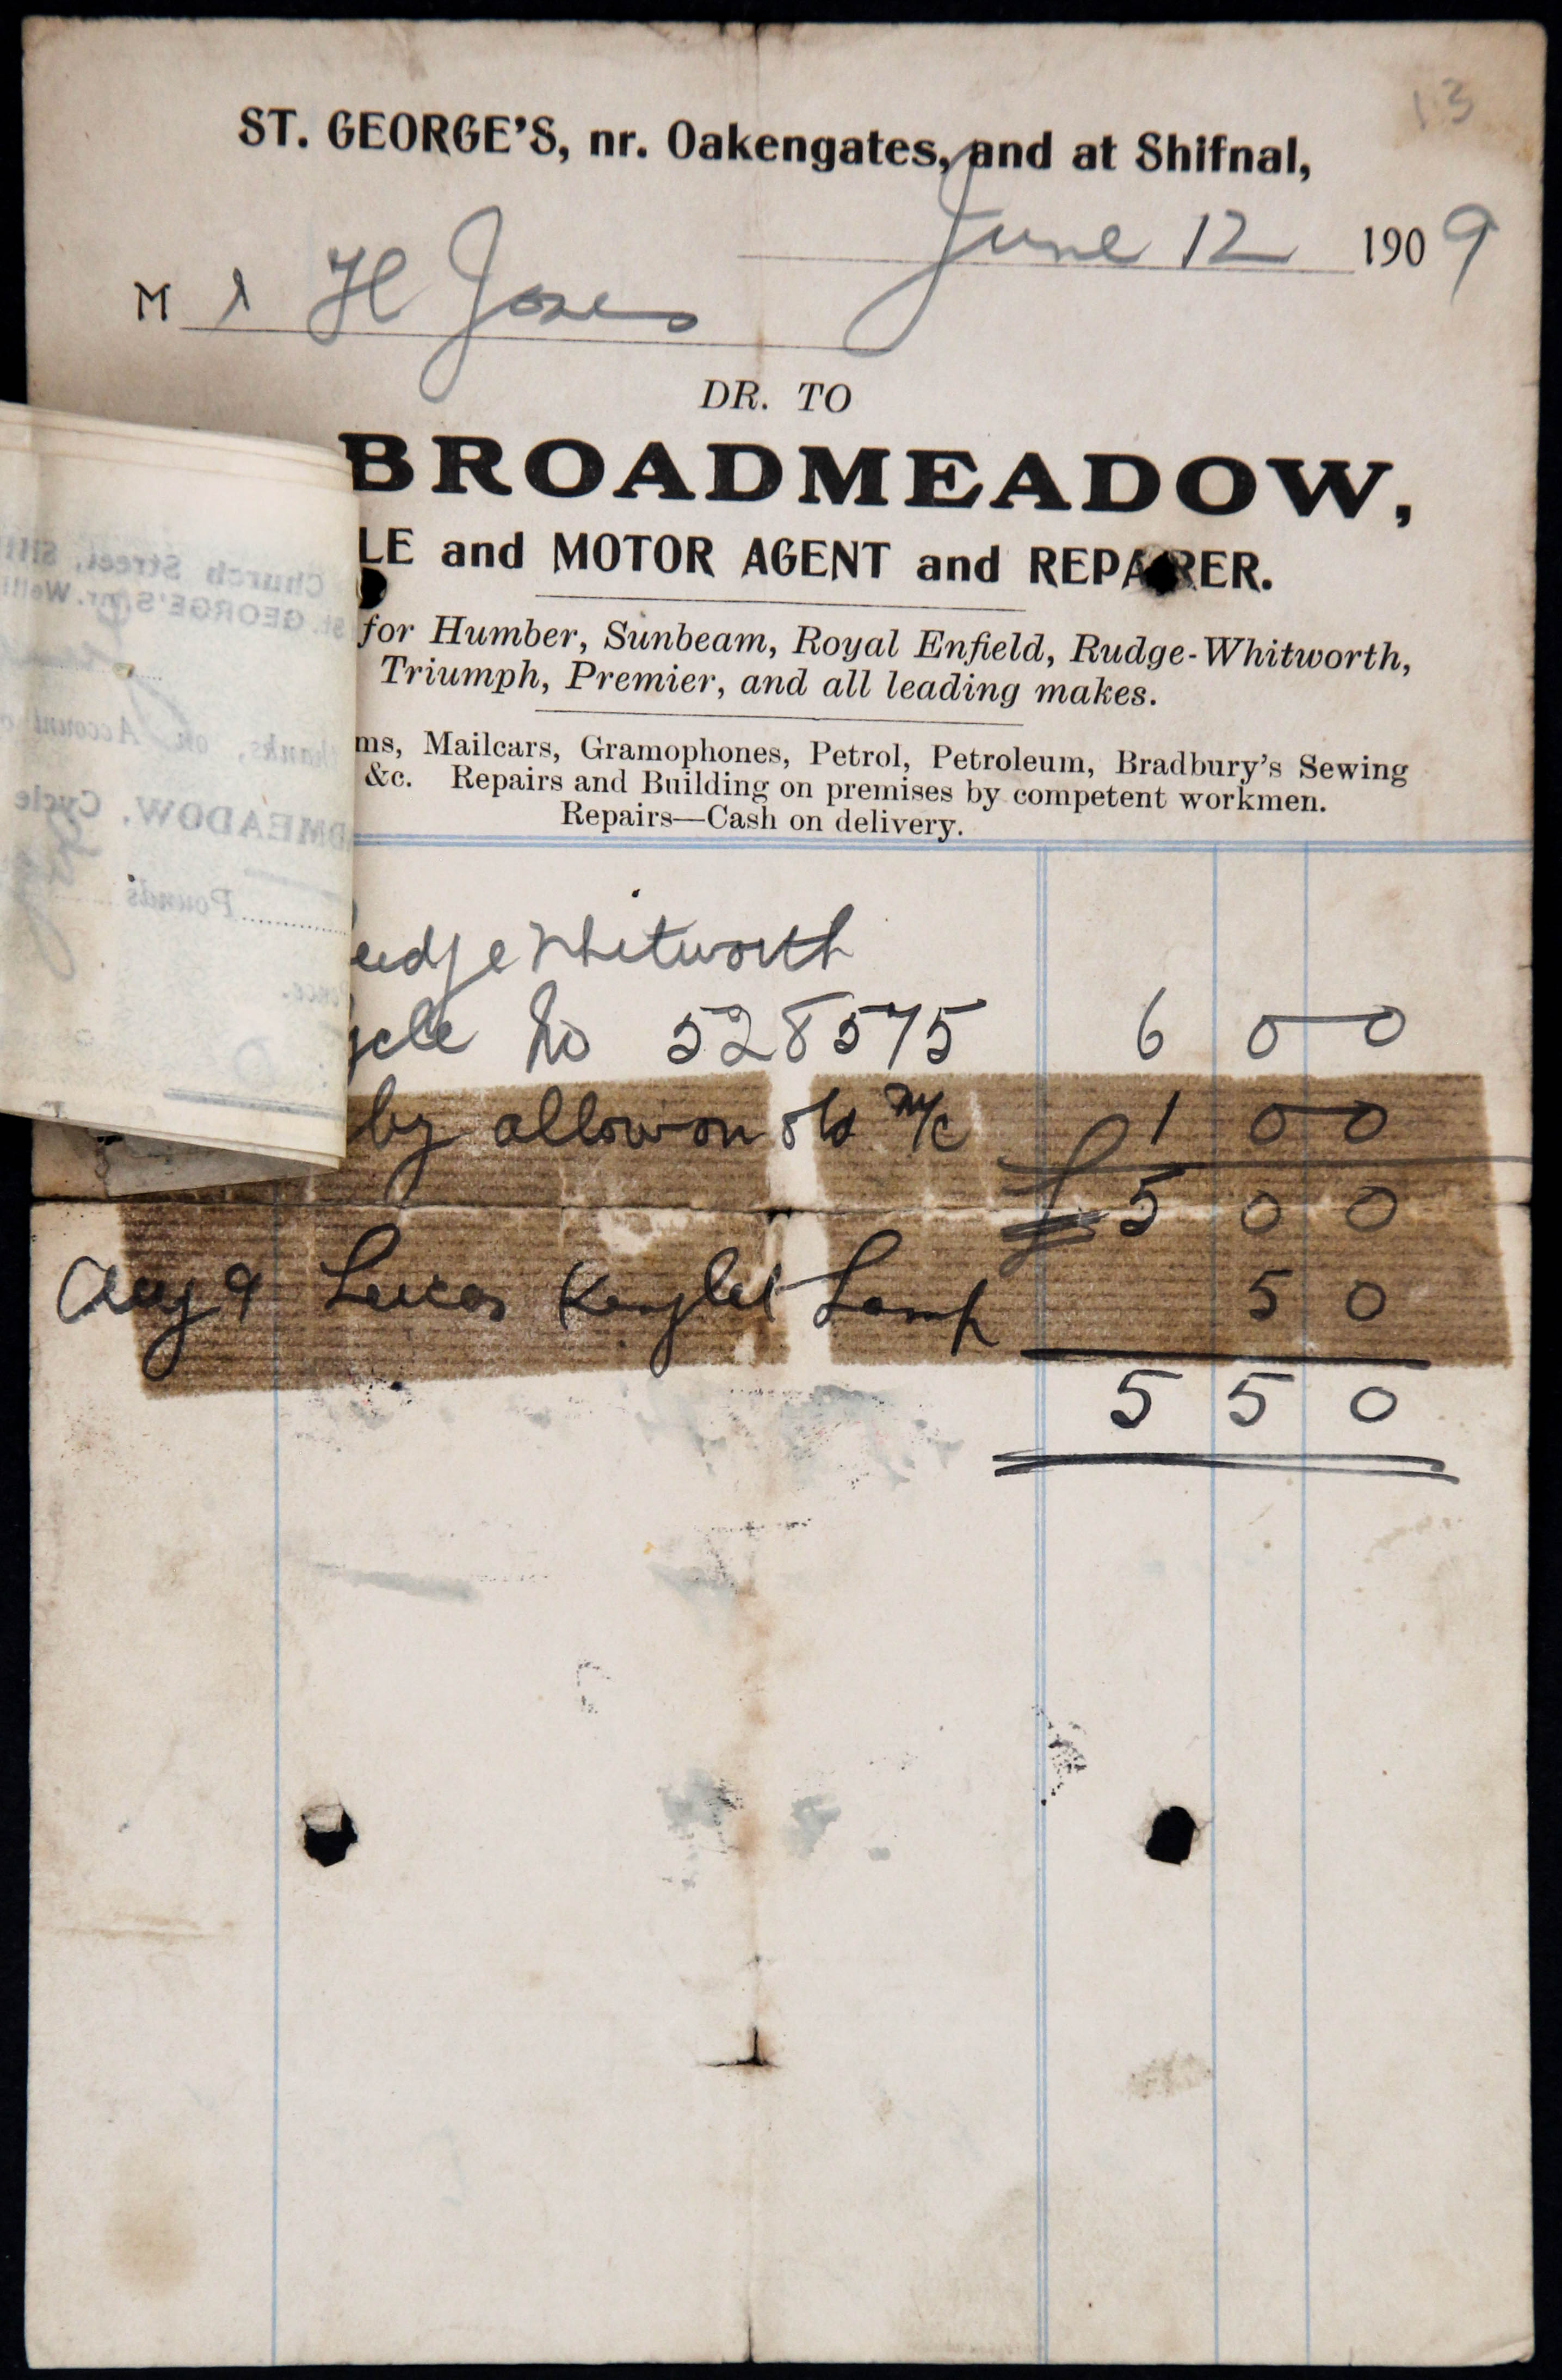 13
ST. GEORGE'S, nr. Oakengates, and at Shifnal,
June 12 1909
Mr H Jones
DR. TO
BROADMEADOW,
LE and MOTOR AGENT and REPAIRER.
for Humber, Sunbeam, Royal Enfield, Rudge-Whitworth,
Triumph, Premier, and all leading makes.
ms, Mailcars, Gramophones, Petrol, Petroleum, Bradbury's Sewing
&c. Repairs and Building on premises by competent workmen.
Repairs—Cash on delivery.
Church Street, SHI
St. GEORGE'S, nr. Welli
thanks, on Account o
DMEADOW, Cycle
Pounds
Pence.
udge Whitworth
ycle No 528575 6 0 0
by allow on old M/c 1 0 0
£ 5 0 0
Aug 9 Lucas Lamp 5 0
5 5 0